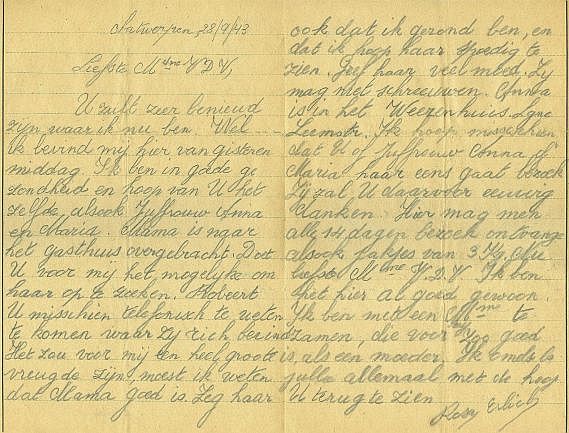 Antwerpen, 28/9/43
Liefste Mme V.D.V,
U zult zeer benieud
zijn waar ik nu ben. Wel
ik bevind mij hier van gisteren
middag. Ik ben in goede ge
zondheid en hoop van U het
zelfde, alsook Juffrouw Anna
en Maria. Mama is naar
het gasthuis overgebracht. Doet
U voor mij het mogelijke om
haar op te zoeken. Probeert
U misschien telefonisch te weten
te komen waar zij zich bevind
Het zou voor mij een heel groote
vreugde zijn, moest ik weten
dat Mama goed is. Zeg haar
ook dat ik gezond ben, en
dat ik hoop haar spoedig te
zien. Geef haar veel moed. Zij
mag niet schreeuwen. Anna
is in het Weezenhuis. Lgne
Leemstr. Ik hoop misschien
dat U of Juffrouw Anna of
Maria haar eens gaat bezoek
Zij zal U daarvoor eeuwig
danken. Hier mag men
alle 14 dagen bezoek ontvange
alsook pakjes van 3 Kg.
liefste Mme V.D.V Ik ben
het hier al goed gewoon.
Ik ben met een Mme te
zamen, die voor mij zoo goed
is, als een moeder. Ik omhels
jullie allemaal met de hoop
U terug te zien
Rosa